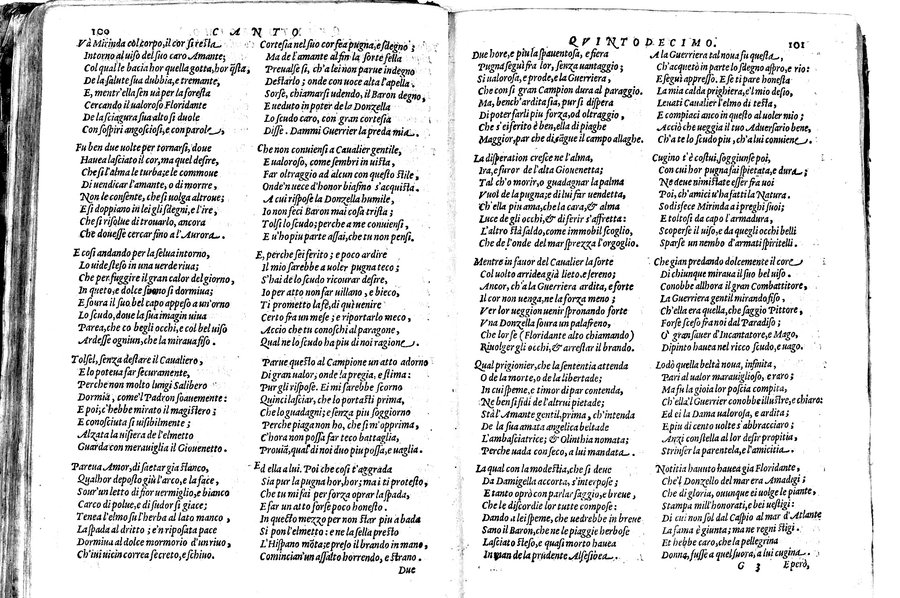 100 CANTO
Và Mirinda col corpo, il cor si resta
Intorno al uiso del suo caro Amante;
Col qual le bacia hor quella gotta, hor ista,
De la salute sua dubbia, e tremante,
E, mentr'ella sen uà per la foresta
Cercando il ualoroso Floridante
De la sciagura sua alto si duole
Con sospiri angosciosi, e con parole,
Fu ben due uolte per tornarsi, doue
Hauea lasciato il cor, ma quel desire,
Che si l'alma le turba; e le commoue
Di uendicar l'amante, o di morire,
Non le consente, che si uolga altroue;
E si doppiano in lei gli sdegni, e l'ire,
Che si risolue di trouarlo, ancora
Che douesse cercar fino a l'Aurora.
E così andando per la selua intorno,
Lo uide steso in una uerde riua;
Che per fuggire il gran calor del giorno,
In queto, e dolce sonno si dormiua;
E soura il suo bel capo appeso a un'orno
Lo scudo, doue la sua imagin uiua
Parea, che co begli occhi, e col bel uiso
Ardesse ogniun, che la miraua fiso.
Tolsel, senza destare il Caualiero,
E lo poteua far securamente,
Perche non molto lungi Salibero
Dormia, come'l Padron soauemente:
E poi; c'hebbe mirato il magistero;
E conosciuta si uisibilmente;
Alzata la uisiera de l'elmetto
Guarda con merauiglia il Giouenetto.
Pareua Amor, di saetar gia stanco,
Qualhor deposto giù l'arco, e la face,
Sour'un letto di fior uermiglio, e bianco
Carco di polue, e di sudor si giace;
Tenea l'elmo su l'herba al lato manco,
La spada al dritto; e'n riposata pace
Dormiua al dolce mormorio d'un riuo,
Ch'iui uicin correa secreto, e schiuo.
Cortesia nel suo cor fea pugna, e sdegno;
Ma de l'amante al fin la forte sella
Preualse sì, ch'a lei non parue indegno
Destarlo; onde con uoce alta l'apella.
Sorse, chiamarsi udendo, il Baron degno,
E ueduto in poter de la Donzella
Lo scudo caro, con gran cortesia
Disse. Dammi Guerrier la preda mia.
Che non conuiensi a Caualier gentile,
E ualoroso, come sembri in uista,
Far oltraggio ad alcun con questo stile,
Onde'n uece d'honor biasmo s'acquista.
A cui rispose la Donzella humile,
Io non feci Baron mai cosa trista;
Tolsi lo scudo; perche a me conuiensi,
E u'ho piu parte assai, che tu non pensi.
E, perche sei ferito; e poco ardire
Il mio sarebbe a uoler pugna teco;
S'hai de lo scudo ricourar desire,
Io per atto non far uillano, e bieco,
Ti prometto la fè, di quì uenire
Certo fra un mese; e riportarlo meco,
Accio che tu conoschi al paragone,
Qual ne lo scudo ha piu di noi ragione.
Parue questo al Campione un atto adorno
Di gran ualor, onde la pregia, e stima:
Pur gli rispose. E mi sarebbe scorno
Quinci lasciar, che lo portasti prima,
Che lo guadagni; e senza piu soggiorno
Perche piaga non ho, che sì m'opprima,
C'hora non possa far teco battaglia,
Prouiã, qual di noi duo piu possa, e uaglia.
Ed ella a lui. Poi che così t'aggrada
Sia pur la pugna hor, hor; ma i ti protesto,
Che tu mi fai per forza oprar la spada,
E far un atto forse poco honesto.
In questo mezzo per non star piu a bada
Si pon l'elmetto: e ne la sella presto
L'Hispano mõta; e preso il brando in mano,
Comincian'un assalto horrendo, e strano.
Due
QVINTODECIMO. 101
Due hore, e piu la spauentosa, e fiera
Pugna seguì fra lor, senza uantaggio;
Si ualorosa, e prode, e la Guerriera,
Che con si gran Campion dura al paraggio.
Ma, bench'ardita sia, pur si dispera
Di poter farli piu forza, od oltraggio,
Che s'ei ferito è ben, ella di piaghe
Maggior, par che di sãgue il campo allaghe.
La disperation cresce ne l'alma,
Ira, e furor de l'alta Giouenetta;
Tal ch'o morir, o guadagnar la palma
Vuol de la pugna; e di lui far uendetta,
Ch'ella piu ama, che la cara, & alma
Luce de gli occhi, & di ferir s'affretta:
L'altro stà saldo, come immobil scoglio,
Che de l'onde del mar sprezza l'orgoglio.
Mentre in fauor del Caualier la sorte
Col uolto arridea già lieto, e sereno;
Ancor, ch'a la Guerriera ardita, e forte
Il cor non uenga, ne la forza meno;
Ver lor ueggion uenir spronando forte
Vna Donzella soura un palafreno,
Che lor fe (Floridante alto chiamando)
Riuolger gli occhi, & arrestar il brando.
Qual prigionier, che la sententia attenda
O de la morte, o de la libertade;
In cui speme, e timor di par contenda,
Ne ben si fidi de l'altrui pietade;
Stà l'Amante gentil, prima, ch'intenda
De la sua amata angelica beltade
L'ambasciatrice; & Olinthia nomata;
Perche uada con seco, a lui mandata.
La qual con la modestia, che si deue
Da Damigella accorta, s'interpose;
E tanto oprò con parlar saggio, e breue,
Che le discordie lor tutte compose:
Dando a lei speme, che uedrebbe in breue
Sano il Baron, che ne le piaggie herbose
Lasciato steso, e quasi morto hauea
In man de la prudente Alfesibea.
A la Guerriera tal noua fu questa,
Ch'acquetò in parte lo sdegno aspro, e rio:
E seguì appresso. E se ti pare honesta
La mia calda prighiera, e'l mio desio,
Leuati Caualier l'elmo di testa,
E compiaci anco in questo al uoler mio;
Acciò che ueggia il tuo Aduersario bene,
Ch'a te lo scudo piu, ch'a lui conuiene.
Cugino t'è costui, soggiunse poi,
Con cui hor pugna fai spietata, e dura;
Ne deue nimistate esser fra uoi
Poi, ch'amici u'ha fatti la Natura.
Sodisfece Mirinda a i preghi suoi;
E toltosi da capo l'armadura,
Scoperse il uiso, e da quegli occhi belli
Sparse un nembo d'armati spiritelli.
Che gian predando dolcemente il core
Di chiunque miraua il suo bel uiso.
Conobbe allhora il gran Combattitore,
La Guerriera gentil mirando fiso,
Ch'ella era quella, che saggio Pittore,
Forse scese fra noi dal Paradiso;
O' gran fauer d'Incantatore, e Mago,
Dipinto hauea nel ricco scudo, e uago.
Lodò quella beltà noua, infinita,
Pari al ualor marauiglioso, e raro;
Ma fu la gioia lor poscia compita,
Ch'ella'l Guerrier conobbe illustre, e chiaro:
Ed ei la Dama ualorosa, e ardita;
E piu di cento uolte s'abbracciaro;
Anzi con stella al lor desir propitia,
Strinser la parentela, e l'amicitia.
Notitia haunto hauea gia Floridante,
Che'l Donzello del mar era Amadigi;
Che di gloria, ouunque ei uolge le piante,
Stampa mill'honorati, e bei uestigi:
Di cui non sol dal Caspio al mar d'Atlante
La fama è giunta; ma ne regni stigi.
Et hebbe caro, che la pellegrina
Donna, fusse a quel suora, a lui cugina.
G 3 Eperò,